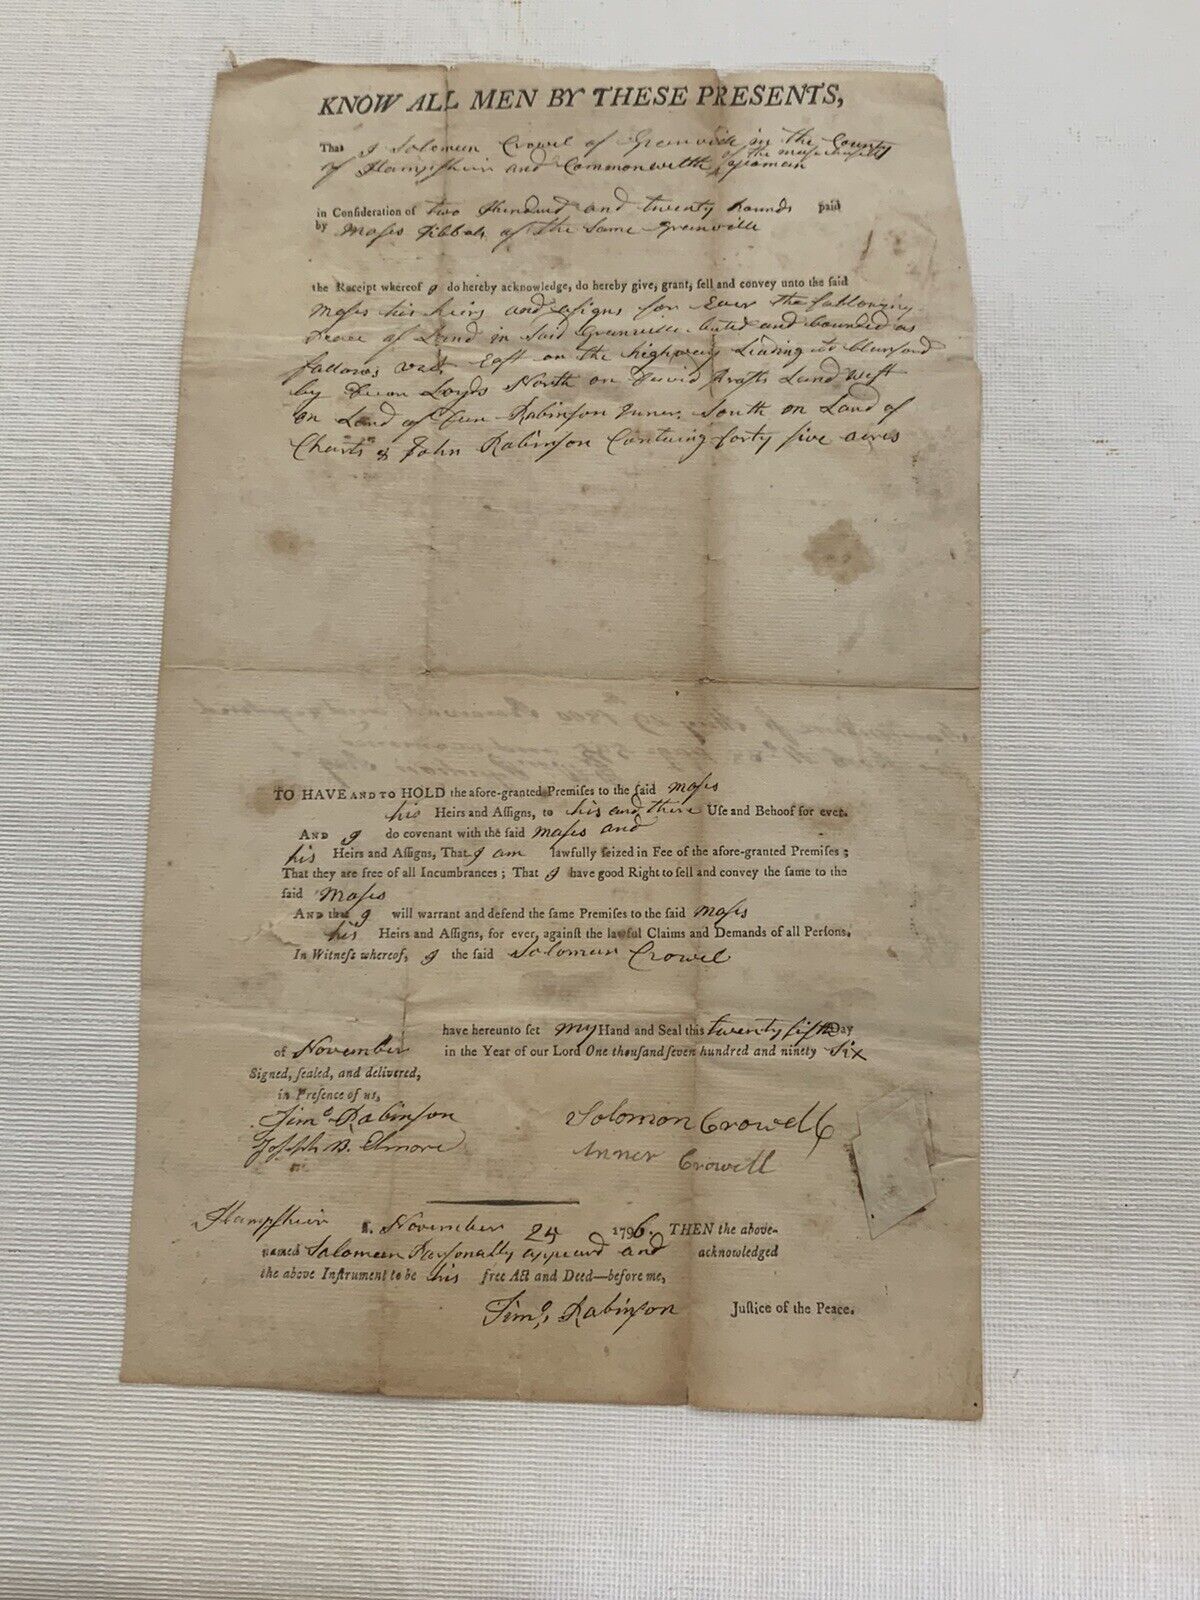 KNOW ALL MEN BY THESE PRESENTS,
That I Solomun Crowel of Greenvill in the County
of Hampsheir and Commonwelth of the Massachusetts yeoman
in Consideration of two Hundred and twenty Pounds paid
by Moses of the Same Greenville
the Receipt whereof I do hereby acknowledge, do hereby give, grant, ſell and convey unto the ſaid
Moses his heirs and asigns for Ever the
Peace of Land in Said Greenville buted and bounded as
follows vez. East on the highway Leading to
by North on David Land West
on Land of Rabinson South on Land of
& John Rabinson Contuing forty five acres
TO HAVE AND TO HOLD the afore-granted Premiſes to the ſaid Moses
his Heirs and Aſſigns, to his and there Uſe and Behoof for ever.
AND I do covenant with the ſaid Moses and
his Heirs and Aſſigns, That I am lawfully ſeized in Fee of the afore-granted Premiſes;
That they are free of all Incumbrances; That I have good Right to ſell and convey the ſame to the
ſaid Moses
AND that I will warrant and defend the ſame Premiſes to the ſaid Moses
his Heirs and Aſſigns, for ever, againſt the lawful Claims and Demands of all Perſons.
In Witneſs whereof, I the ſaid Solomun Crowel
have hereunto ſet my Hand and Seal this twenty fifth Day
of November in the Year of our Lord One thouſand ſeven hundred and ninety Six
Signed, ſealed, and delivered,
in Preſence of us,
Timo Rabinson
Joseph B. Elmore
Solomon Crowell
Anner Crowell
Hampsheir ſſ. November 25 1796. THEN the above-
named Solomun Parsonally appeard and acknowledged
the above Inſtrument to be his free Act and Deed—before me,
Timo, Rabinson Juſtice of the Peace.